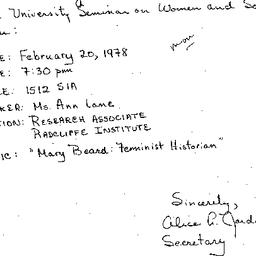 University Seminar on Women and So
E: February 20, 1978
mon
E: 7:30 pm
E: 1512 SIA
KER: Ms. Ann Lane
TION: RESEARCH ASSOCIATE
RADCLIFFE INSTITUTE
IC: "Mary Beard: Feminist Historian"
Sincerely,
Alice P.
Secretary